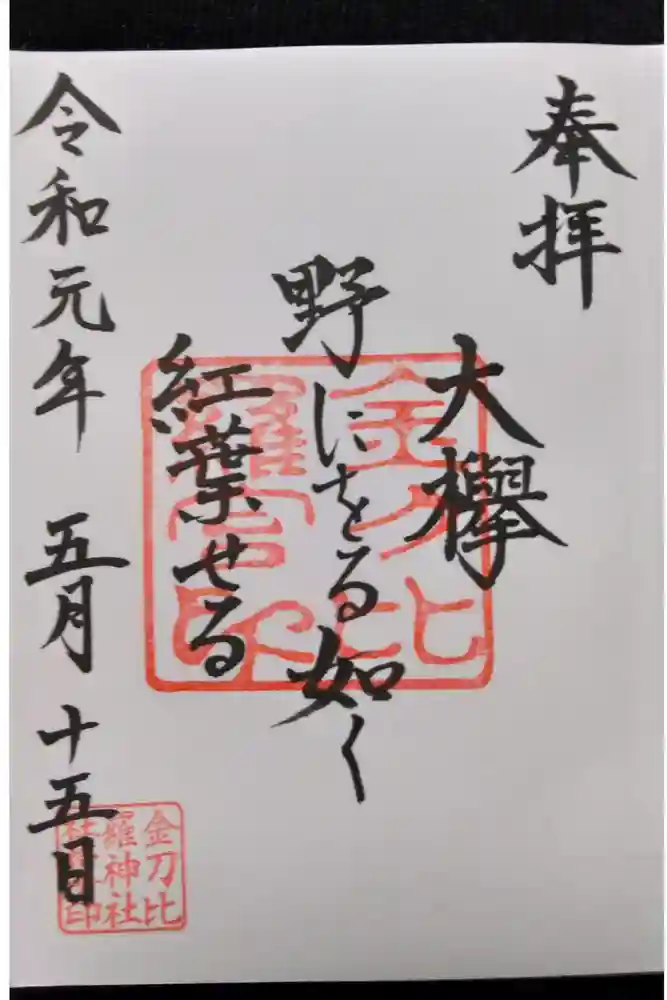 奉拝
大欅
野にをる如く
紅葉せる
令和元年 五月 十五日
金刀比
羅宮印
金刀比
羅神社